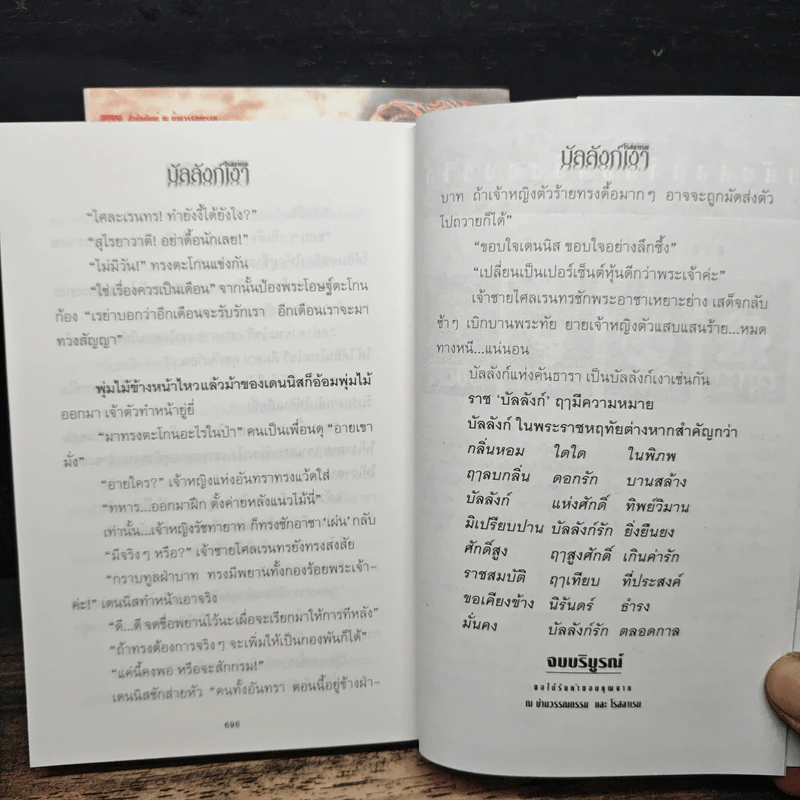 โรสลาเรน
บัลลังก์เงา
"ไศละเรนทร! ทำยังงี้ได้ยังไง?"
"สุไรยาวาตี! อย่าดื้อนักเลย!"
"ไม่มีวัน!" ทรงตะโกนแข่งกัน
"ใช่ เรื่องควรเป็นเดือน" จากนั้นป้องพระโอษฐ์ตะโกน
ก้อง "เรย่าบอกว่าอีกเดือนจะรับรักเรา อีกเดือนเราจะมา
ทวงสัญญา"
พุ่มไม้ข้างหน้าไหวแล้วม้าของเดนนิสก็อ้อมพุ่มไม้
ออกมา เจ้าตัวทำหน้ายู่ยี่
"มาทรงตะโกนอะไรในป่า" คนเป็นเพื่อนดุ "อายเขา
มั่ง"
"อายใคร?" เจ้าหญิงแห่งอันทราทรงแว้ดใส่
"ทหาร...ออกมาฝึก ตั้งค่ายหลังแนวไม้นี่"
เท่านั้น...เจ้าหญิงรัชทายาท ก็ทรงชักอาชา 'เผ่น' กลับ
"มีจริงๆ หรือ?" เจ้าชายไศลเรนทรยังทรงสงสัย
"กราบทูลฝ่าบาท ทรงมีพยานทั้งกองร้อยพระเจ้า-
ค่ะ!" เดนนิสทำหน้าเอาจริง
"ดี...ดี จดชื่อพยานไว้นะเผื่อจะเรียกมาให้การทีหลัง"
"ถ้าทรงต้องการจริงๆ จะเพิ่มให้เป็นกองพันก็ได้"
"แค่นี้คงพอ หรือจะสักกรม!"
เดนนิสชักส่ายหัว "คนทั้งอันทรา ตอนนี้อยู่ข้างฝ่า-
696
โรสลาเรน
บัลลังก์เงา
บาท ถ้าเจ้าหญิงตัวร้ายทรงดื้อมากๆ อาจจะถูกมัดส่งตัว
ไปถวายก็ได้"
"ขอบใจเดนนิส ขอบใจอย่างลึกซึ้ง"
"เปลี่ยนเป็นเปอร์เซ็นต์หุ้นดีกว่าพระเจ้าค่ะ"
เจ้าชายไศลเรนทรชักพระอาชาเหยาะย่าง เสด็จกลับ
ช้าๆ เบิกบานพระทัย ยายเจ้าหญิงตัวแสบแสนร้าย...หมด
ทางหนี...แน่นอน
บัลลังก์แห่งคันธารา เป็นบัลลังก์เงาเช่นกัน
ราช 'บัลลังก์' ฤๅมีความหมาย
บัลลังก์ ในพระราชหฤทัยต่างหากสำคัญกว่า
กลิ่นหอม ใดใด ในพิภพ
ฤๅลบกลิ่น ดอกรัก บานสล้าง
บัลลังก์ แห่งศักดิ์ ทิพย์วิมาน
มิเปรียบปาน บัลลังก์รัก ยิ่งยืนยง
ศักดิ์สูง ฤๅสูงศักดิ์ เกินค่ารัก
ราชสมบัติ ฤๅเทียบ ที่ประสงค์
ขอเคียงข้าง นิรันดร์ ธำรง
มั่นคง บัลลังก์รัก ตลอดกาล
จบบริบูรณ์
ขอได้รับคำขอบคุณจาก
ณ บ้านวรรณกรรม และ โรสลาเรน